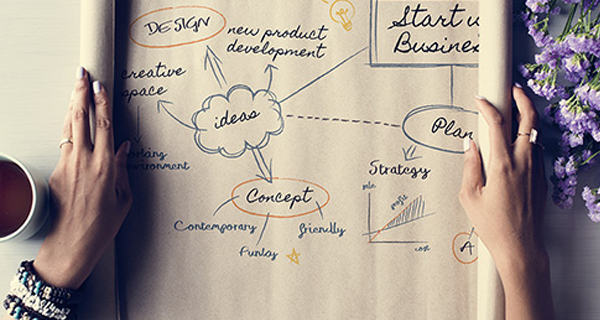 DESIGN
new product
development
Start u
Busines
creative
space
ideas
Plan
working
environment
Strategy
Concept
profit
Contemporary
friendly
Funky
cost
A